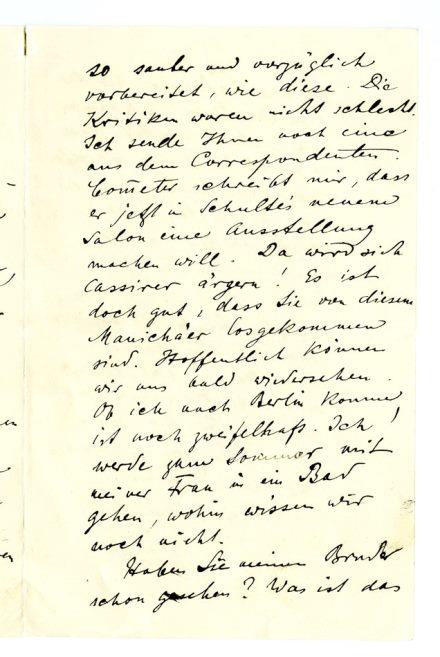 so sauber und vorzüglich
vorbereitet, wie diese. Die
Kritiken waren nicht schlecht.
Ich sende Ihnen noch eine
aus dem Correspondenten.
Cometer schreibt mir, dass
er jetzt in Schulte's neuem
Salon eine Ausstellung
machen will. Da wird sich
Cassirer ärgern! Es ist
doch gut, dass Sie von diesem
Manichäer losgekommen
sind. Hoffentlich können
wir uns bald wiedersehen.
Ob ich nach Berlin komme,
ist noch zweifelhaft. Ich
werde zum Sommer mit
meiner Frau in ein Bad
gehen, wohin wissen wir
noch nicht.
Haben Sie meinen Bruder
schon gesehen? Was ist das